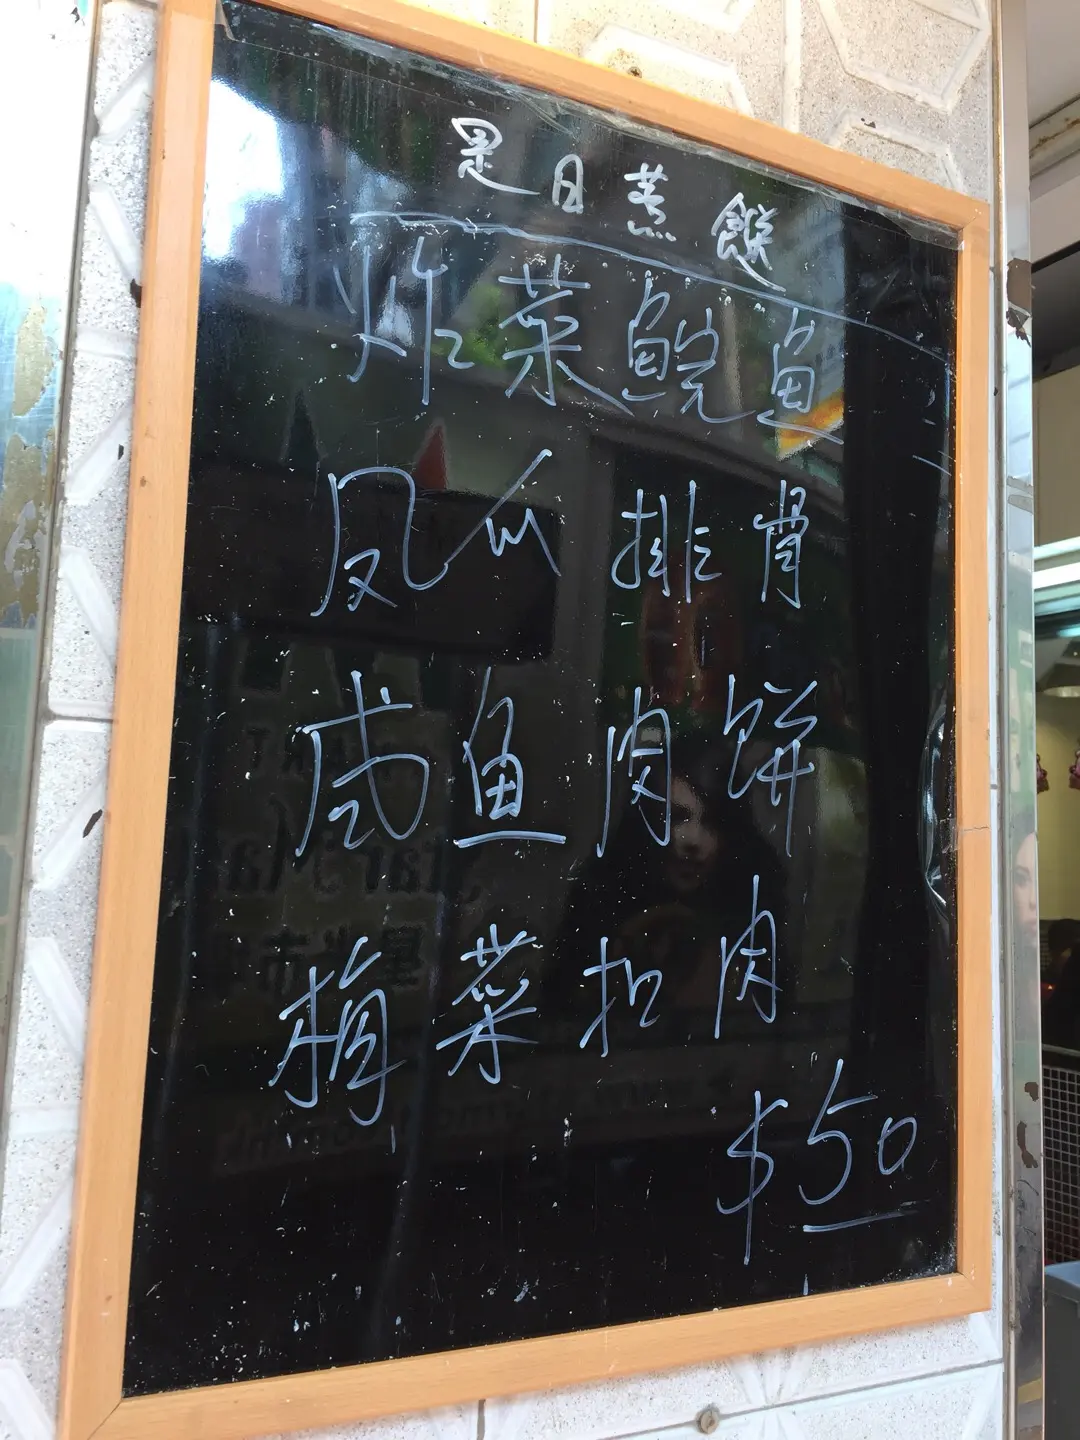 是日蒸餸
炸菜鯇鱼
凤爪排骨
咸鱼肉饼
梅菜扣肉
$50